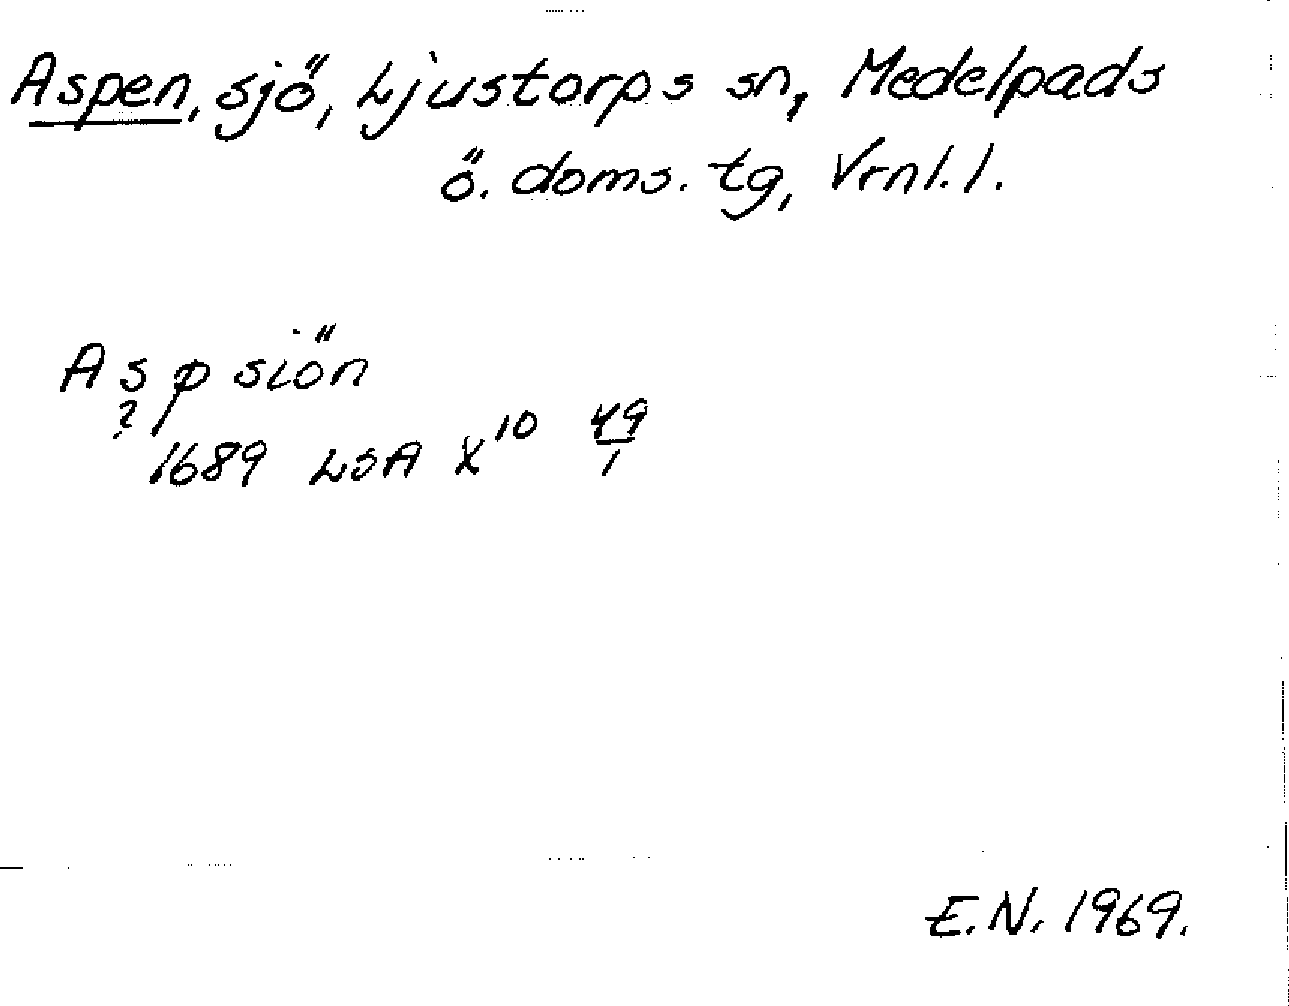 Aspen, sjö, Ljustorps sn, Medelpads
ö. doms. tg, Vrnl. l.
Aspsiön
?
1689 LSA X¹⁰ 49/1
E.N. 1969.